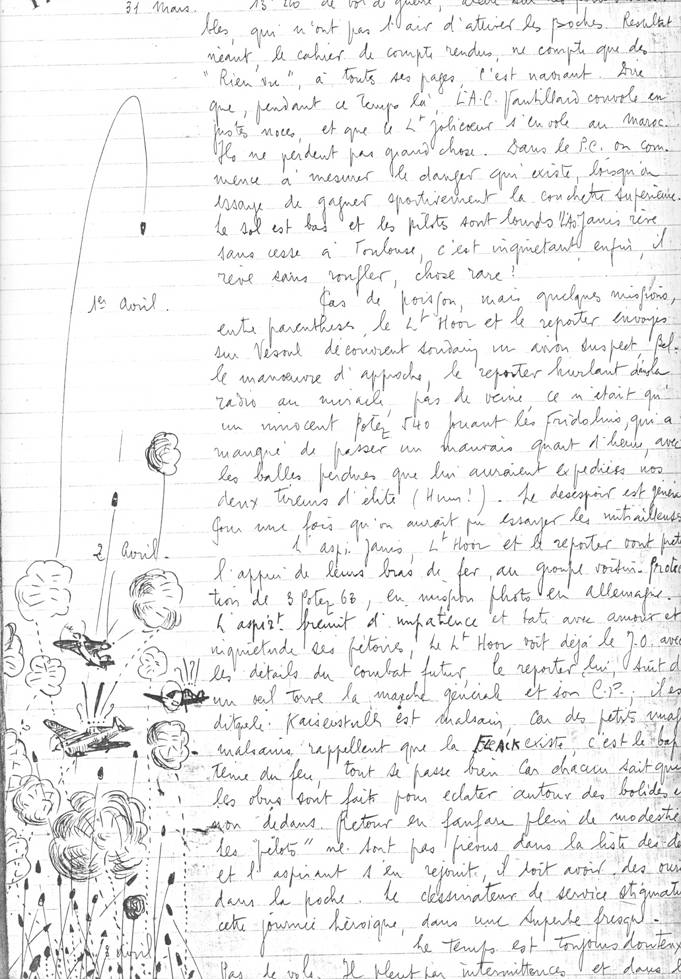 31 Mars. 13 h 20 de vol de guerre,
bles, qui n'ont pas l'air d'attirer les Boches. Resultat
néant, le cahier de compte rendus, ne compte que des
"Rien vu", à toutes ses pages, c'est navrant. Dire
que, pendant ce temps là, L'A.C. Vantillard convole en
justes noces, et que le Lt Jolicoeur s'envole au Maroc.
Ils ne perdent pas grand chose. Dans le P.C. on com-
mence à mesurer le danger qui existe, lorsqu'on
essaye de gagner sportivement la couchette supérieure.
Le sol est bas et les pilots sont lourds L'As Janis rêve
sans cesse à Toulouse, c'est inquietant, enfin, il
rêve sans ronfler, chose rare!
1er Avril. Pas de poisson, mais quelques missions,
entre parentheses, le Lt Hoor et le reporter envoyés
sur Vesoul découvrent soudain un avion suspect, Bel-
le manœuvre d'approche, le reporter hurlant dans la
radio au miracle, pas de veine ce n'était qu'
un innocent Potez 540 jouant les Fridolins, qui a
manqué de passer un mauvais quart d'heure, avec
les balles perdues que lui auraient expediées nos
deux tireurs d'élite (Hum!). Le desespoir est général
Pour une fois qu'on aurait pu essayer les mitrailleuses
2 Avril. L'aspi. Janis, Lt Hoor et le reporter vont prêter
l'appui de leurs bras de fer, au groupe voisin. Protec-
tion de 3 Potez 63, en mission photo en Allemagne.
L'aspirt fremit d'impatience et tate avec amour et
inquietude ses pétoires, le Lt Hoor voit déjà le J.O. avec
les détails du combat futur, le reporter lui, suit d'
un œil torve la marche général et son C.P.,
Kaiserstuhl est malsain, car des petits nuages
malsains rappellent que la FLACK existe, c'est le bap-
teme du feu, tout se passe bien car chacun sait que
les obus sont faits pour eclater autour des bolides et
non dedans. Retour en fanfare plein de modestie
Les "pilots" ne sont pas prévus dans la liste des
et l'aspirant s'en rejouit, il doit avoir des
dans la poche. Le dessinateur de service stigmatise
cette journée héroïque, dans une superbe fresque.
3 Avril Le temps est toujours douteux
Pas de vols. Il pleut par intermittences et dans